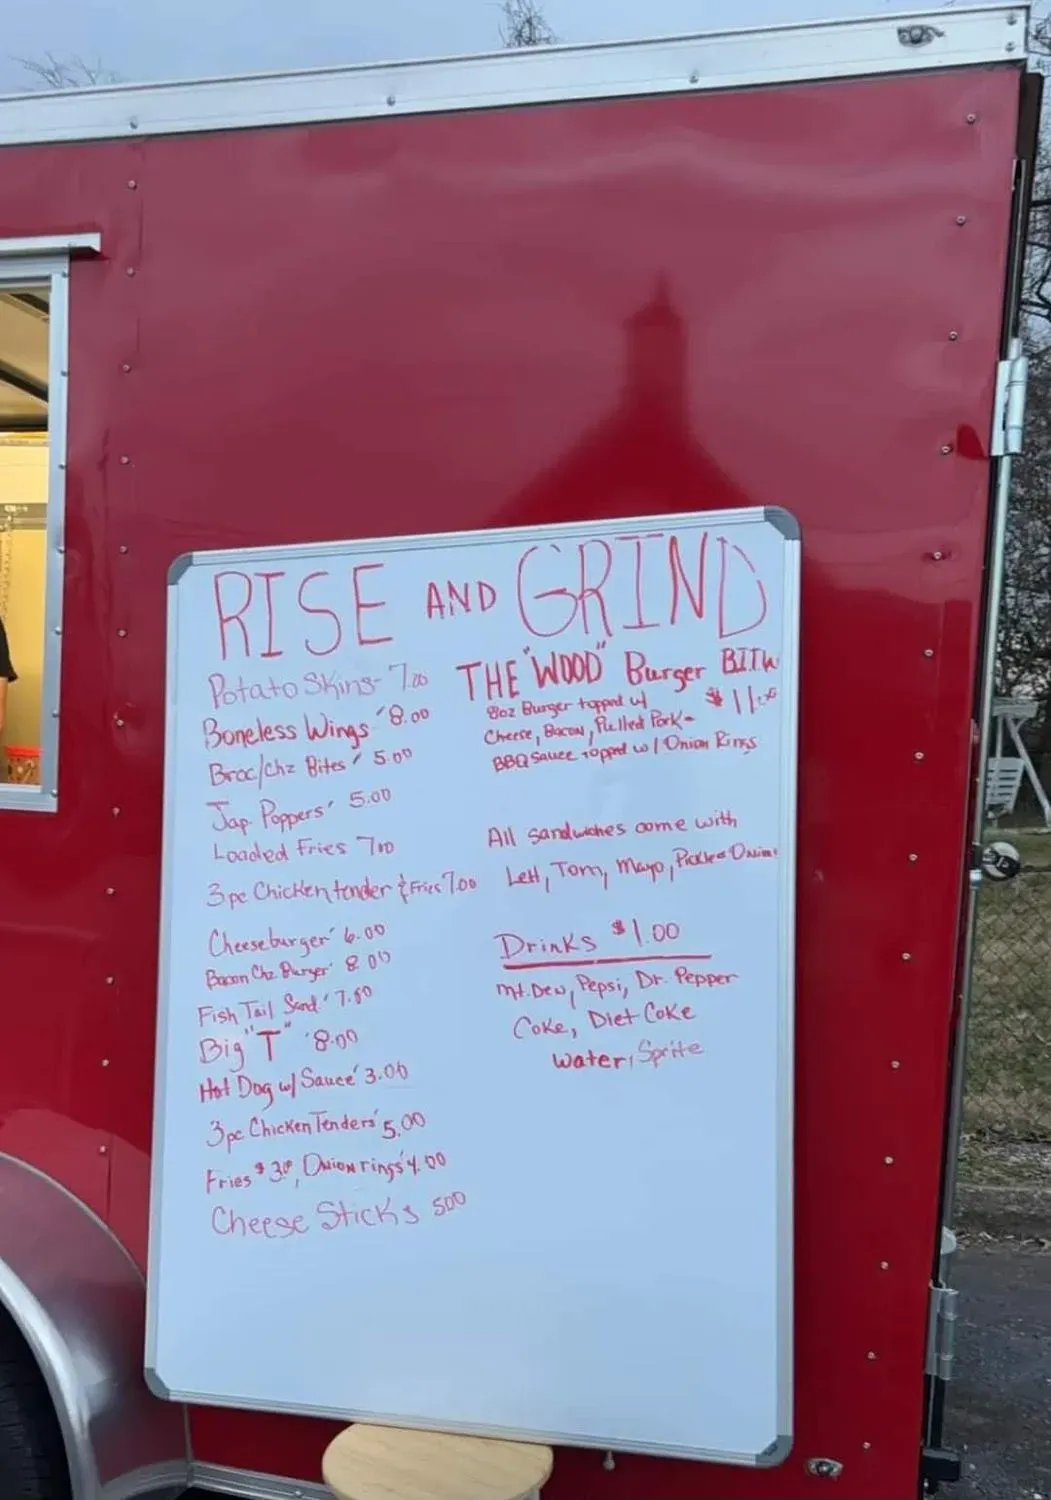 RISE AND GRIND
Potato Skins- 7.00
Boneless Wings 8.00
Broc/Chz Bites 5.00
Jap. Poppers 5.00
Loaded Fries 700
3pc Chicken tender & Fries 7.00
Cheeseburger 6.00
Bacon Chz Burger 8.00
Fish Tail Sand. 7.50
Big "T" 8.00
Hot Dog w/ Sauce 3.00
3pc Chicken Tenders 5.00
Fries $3.00, Onion rings 4.00
Cheese Sticks 500
THE "WOOD" Burger BITW
8oz Burger topped w/ $11.00
Cheese, Bacon, Pulled Pork-
BBQ Sauce topped w/ Onion Rings
All sandwiches come with
Lett, Tom, Mayo, Pickle Onion
Drinks $1.00
Mt. Dew, Pepsi, Dr. Pepper
Coke, Diet Coke
water, Sprite